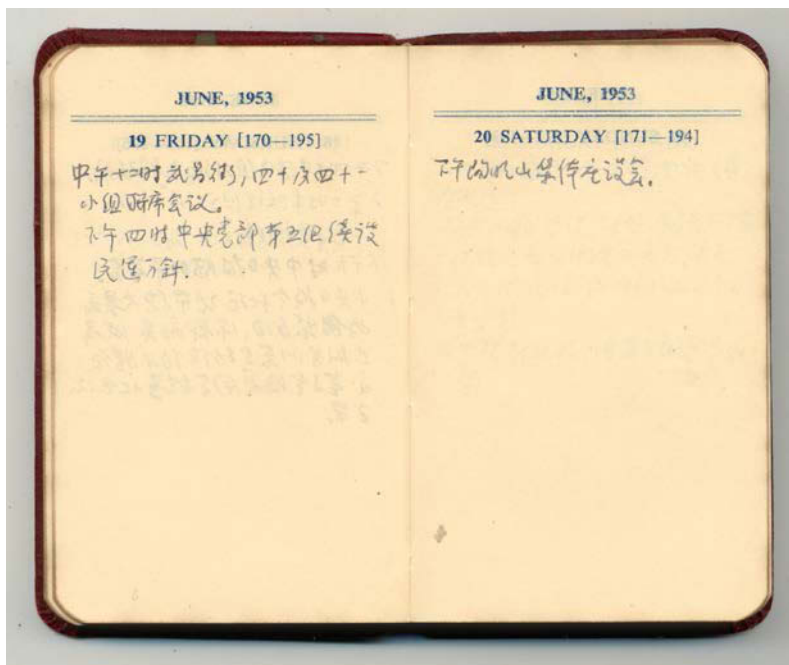 JUNE, 1953
19 FRIDAY [170—195]
中午十二时武昌街,四十及四十一
小组联席会议。
下午四时中央党部第五组续谈
民运方针.
JUNE, 1953
20 SATURDAY [171—194]
下午阳明山集体座谈会.